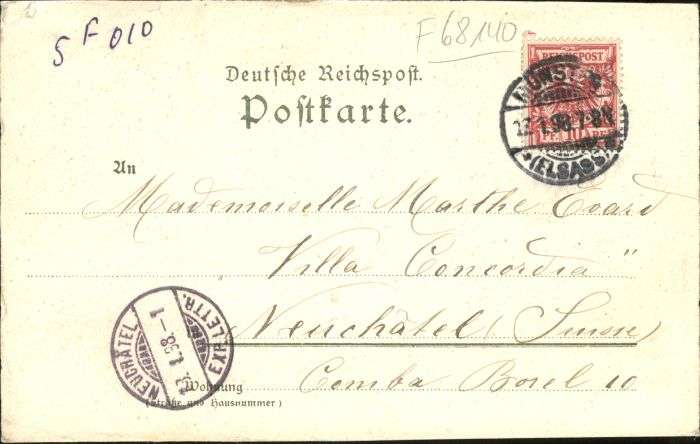 5 F 010
F68140
REICHSPOST
MÜNSTER
98.7-8N
*(ELSASS)*
Deutsche Reichspost.
Postkarte.
An
Mademoiselle Marthe Evard
"Villa Concordia"
Neuchâtel (Suisse)
Comba Borel 10
NEUCHÂTEL
1.98.-1
EXP. LETTR.
Wohnung
(Straße und Hausnummer)